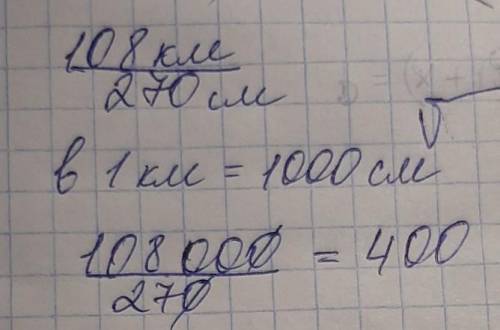 108 км
270 см
в 1 км = 1000 см
108000 = 400
270